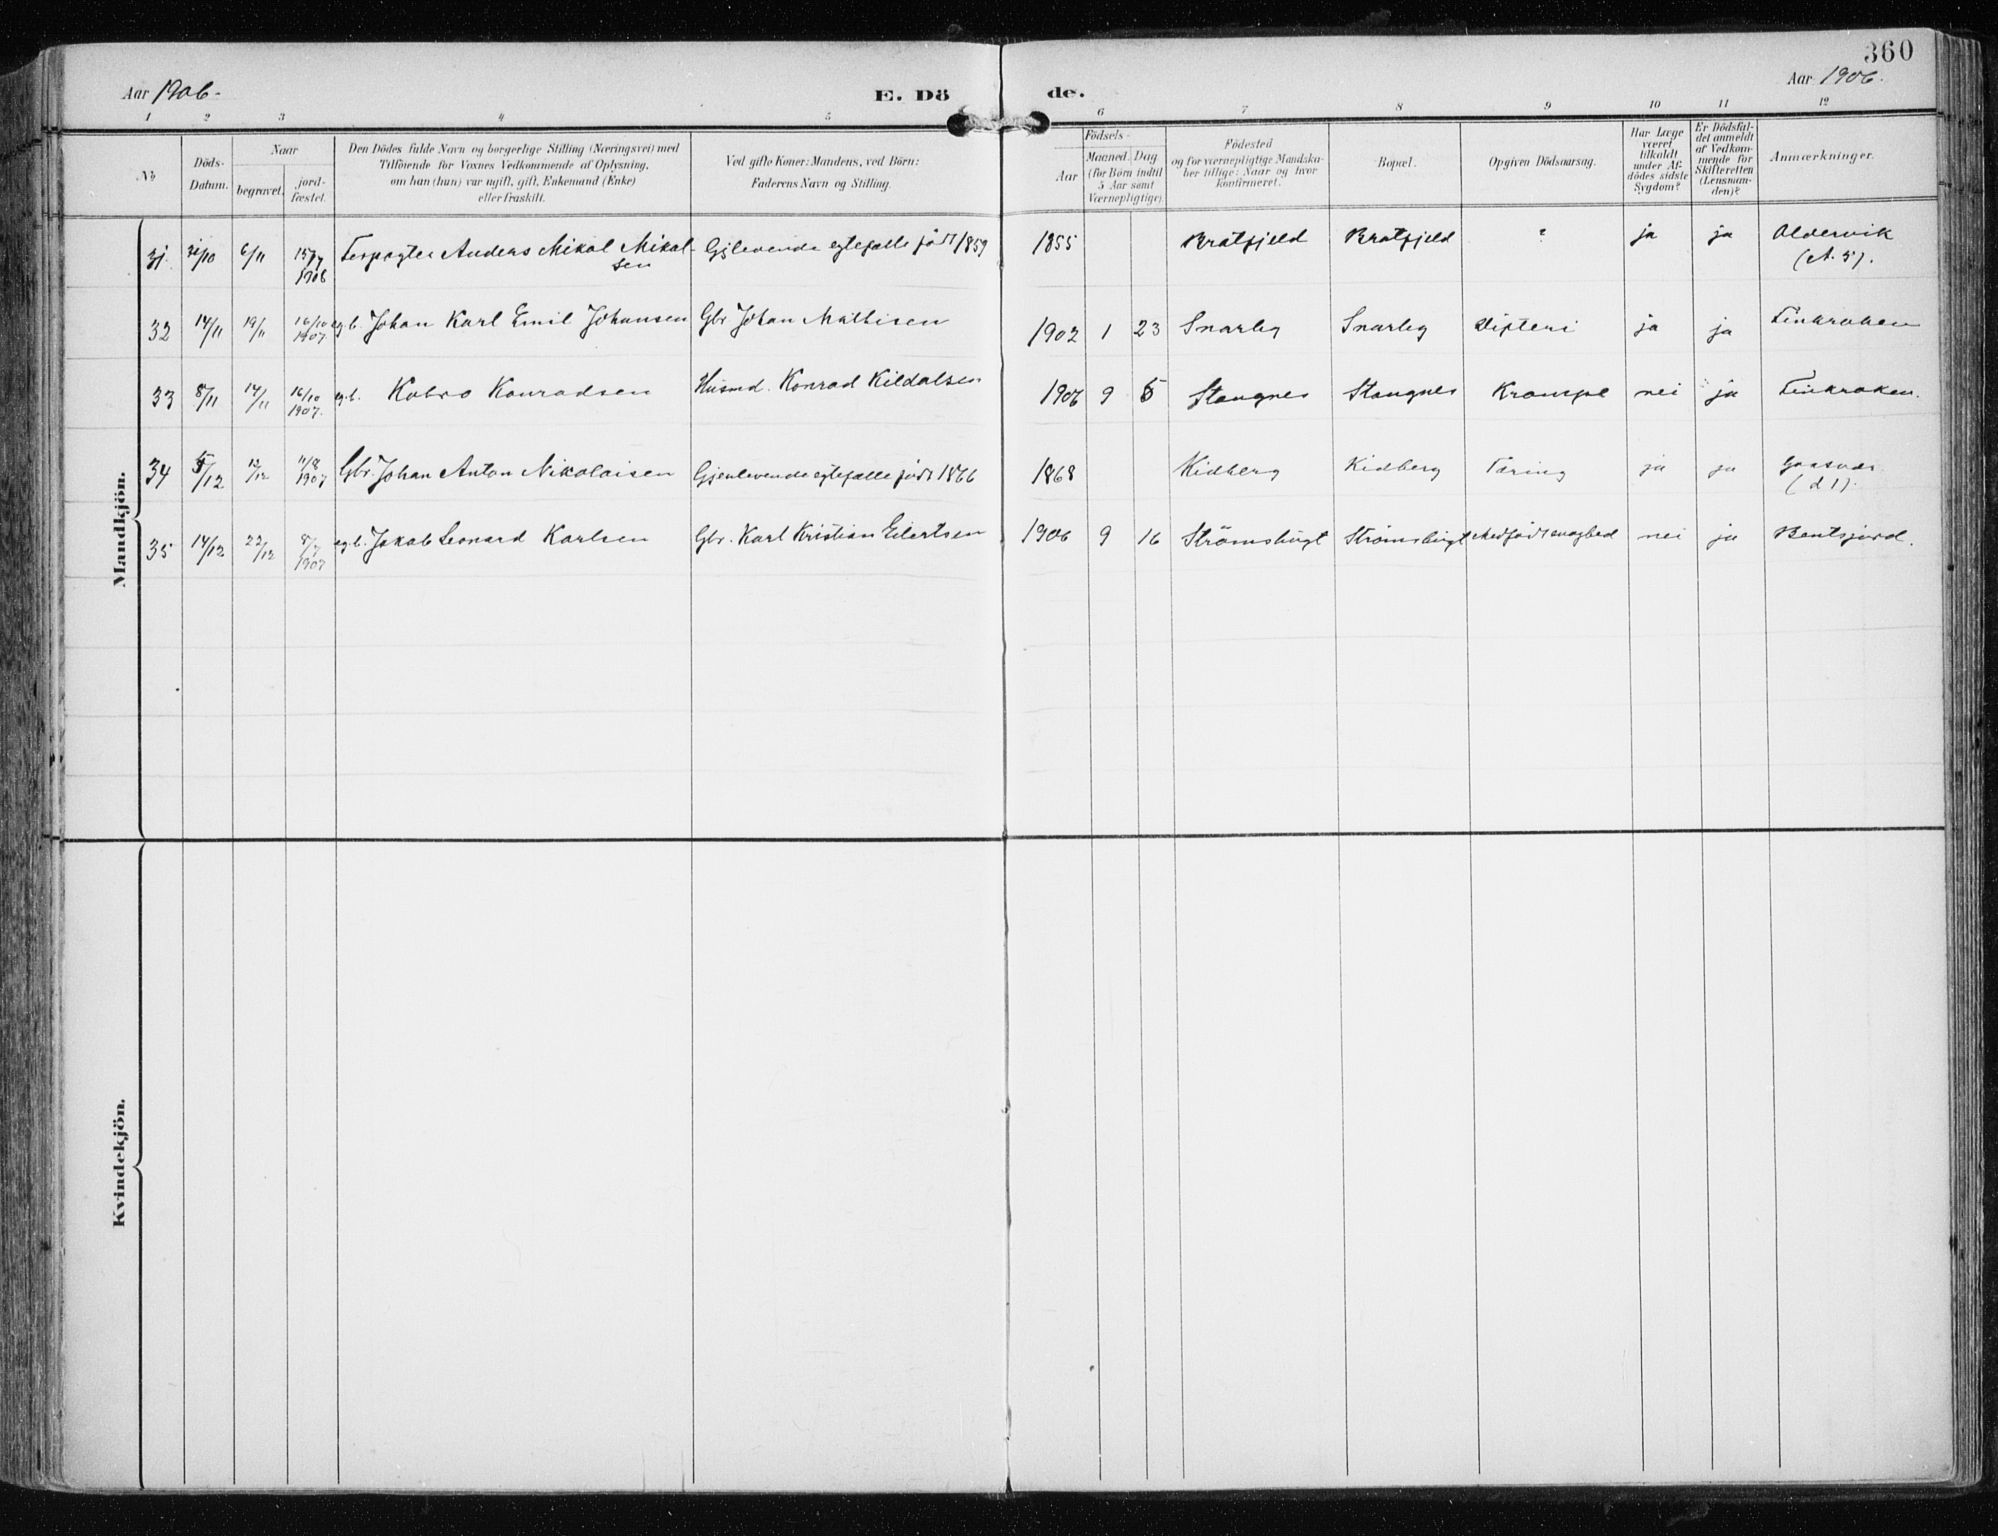 360
Aar 1906. E. Dö de. Aar 1906.
1 2 3 4 5 6 7 8 9 10 11 12
No Döds-Datum. Naar begravet. jord-fæstet. Den Dödes fulde Navn og borgerlige Stilling (Næringsvei) med Tilföiende for Voxnes Vedkommende af Oplysning, om han (hun) var ugift, gift, Enkemand (Enke) eller fraskilt. Ved gifte Koner: Mandens, ved Börn: Faderens Navn og Stilling. Födsels- Aar Maaned. Dag (for Börn indtil 5 Aar samt Værnepligtige) Födested og for værnepligtige Mandskaber tillige: Naar og hvor konfirmeret. Bopæl. Opgiven Dödsaarsag. Har Læge været tilkaldt under Afdödes sidste Sygdom? Er Dödsfaldet anmeldt af Vedkommende for Skifteretten (Lensmanden)? Anmærkninger.
Mandkjön.
31. 31/10 6/11 1906 Anders Mikal Mikalsen Gjlevende egtefælle födt 1859 1855 Bratfjeld Bratfjeld ? ja ja Oldervik (A. 5).
32 14/11 19/11 16/10 1907. egb. Johan Karl Emil Johansen Gbr Johan Mathisen 1902 1 23 Snarby Snarby Difteri ja ja Finkroken
33 8/11 14/11 16/10 1907. egb. Kobro Konradsen Husmd. Konrad Kildalsen 1906 9 5 Stangnes Stangnes Krampe nei ja Finkroken.
34 5/12 12/12 11/8 1907 Gbr. Johan Anton Nikolaisen Gjenlevende egtefælle födt 1866 1868 Kidberg Kidberg Tæring ja ja Gaasvær (d 1).
35 14/12 22/12 8/7 1907 egb. Jakob Leonard Karlsen Gbr. Karl Kristian Eilertsen 1906 9 16 Strömsbugt Strömsbugt Medfödt svaghed nei ja Bentsjord.
Kvindekjön.